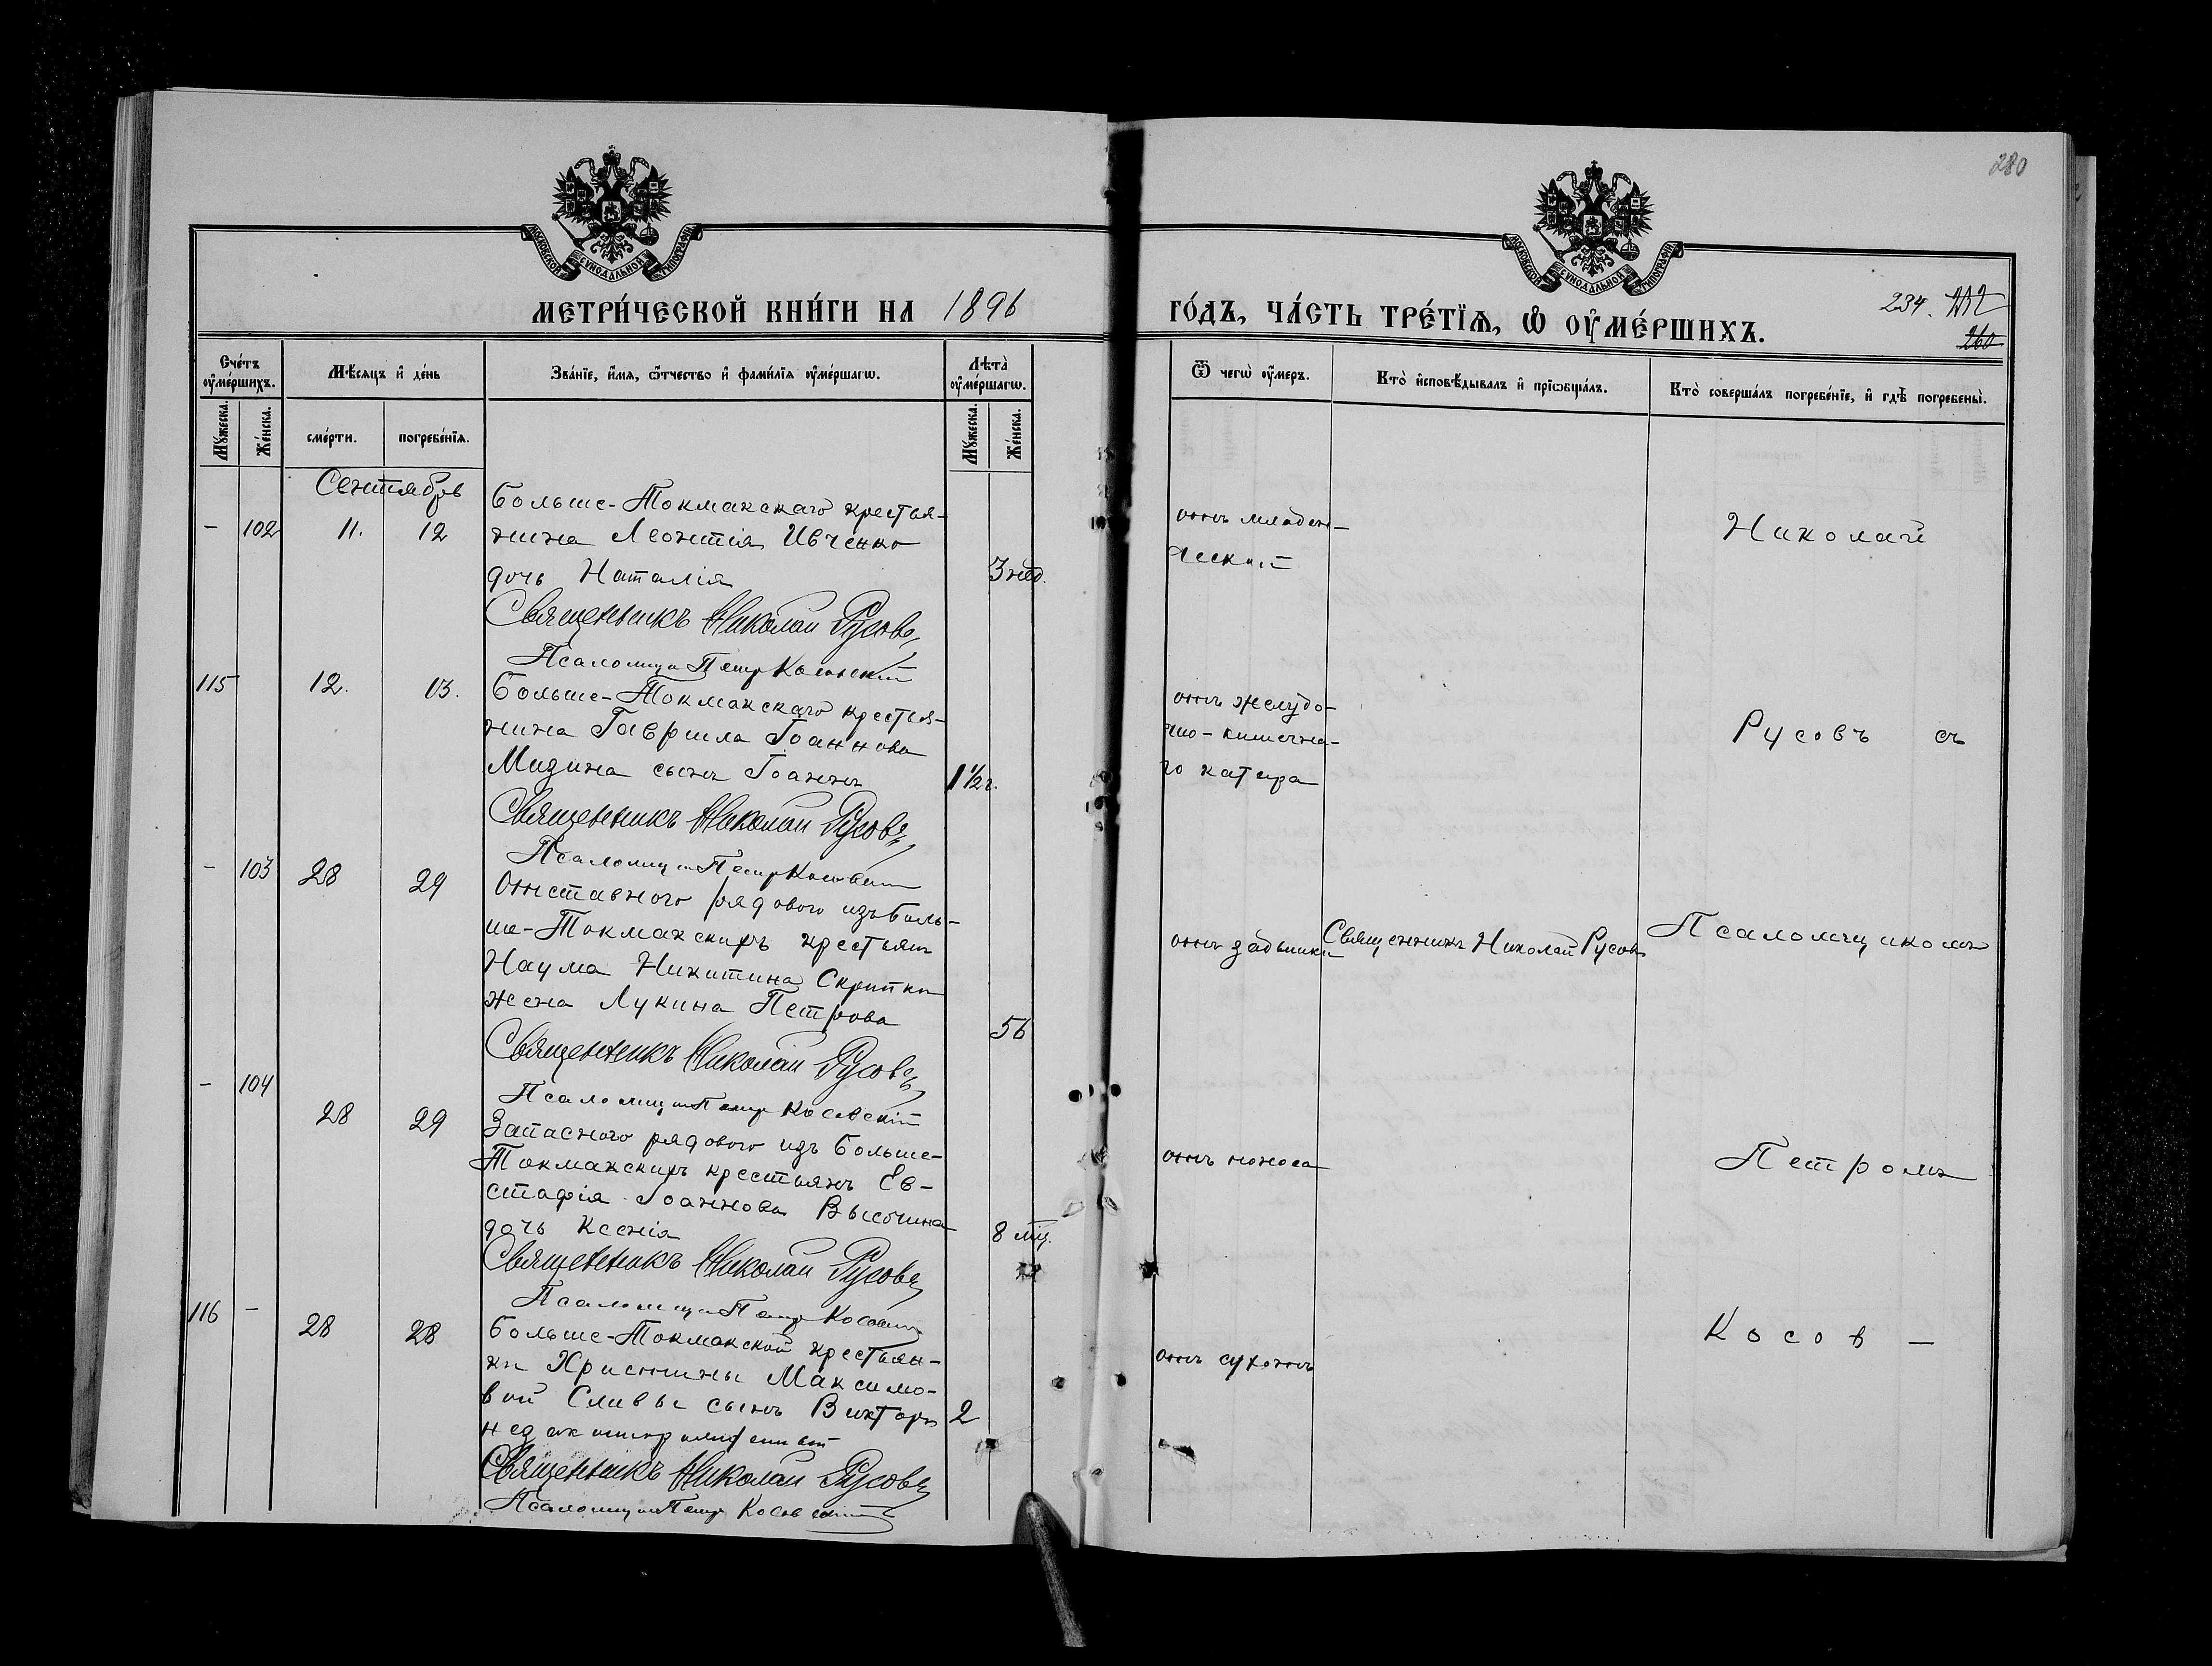 280
МОСКОВСКОЙ СѴНОДАЛЬНОЙ ТИПОГРАФІИ
МОСКОВСКОЙ СѴНОДАЛЬНОЙ ТИПОГРАФІИ
МЕТРИ́ЧЕСКОЙ КНИ́ГИ НА 1896
ГО́ДЪ, ЧА́СТЬ ТРЕ́ТЇѦ, Ѡ҆ ОУ҆МЕ́РШИХЪ.
234.
260
Сче́тъ оу҆ме́ршихъ.
Мꙋ́жеска.
Же́нска.
Мѣ́сяцъ и҆ де́нь
сме́рти.
погребе́нїѧ.
Зва́нїе, и҆́мѧ, ѻ҆́тчество и҆ фами́лїѧ оу҆ме́ршагѡ.
Лѣ̑та̀ оу҆ме́ршагѡ.
Мꙋ́жеска.
Же́нска.
Ѿ чегѡ̀ оу҆́меръ.
Кто̀ и҆сповѣ́дывалъ и҆ прїѡбща́лъ.
Кто̀ соверша́лъ погребе́нїе, и҆ гдѣ̀ погребены̀.
Сентябрь
- 102 11. 12
Больше-Токмакскаго крестья-
нина Леонтія Ивченко
дочь Наталія 3 нед.
Священникъ Николай Русовъ
Псаломщ Петръ Косовскій
отъ младен-
ческой
Николай
115 12. 13.
Больше-Токмакскаго крестья-
нина Гавриила Іоаннова
Мизина сынъ Іоаннъ 1 1/2 г.
Священникъ Николай Русовъ
Псаломщ Петръ Косовскій
отъ желудо-
чно-кишечна-
го катара
Русовъ съ
- 103 28 29
Отставного рядового изъ Боль-
ше-Токмакскихъ крестьянъ
Наума Никитина Скрипки
жена Лукина Петрова 56
Священникъ Николай Русовъ
Псаломщ Петръ Косовскій
отъ задышки
Священникъ Николай Русовъ
Псаломщикомъ
- 104 28 29
Запасного рядового изъ Больше-
Токмакскихъ крестьянъ Ев-
стафія Іоаннова Высочина
дочь Ксенія 8 мц.
Священникъ Николай Русовъ
Псаломщ Петръ Косовскій
отъ поноса
Петромъ
116 - 28 28
Больше-Токмакской крестьян-
ки Христины Максимо-
вой Сливы сынъ Викторъ 2
Священникъ Николай Русовъ
Псаломщ Петръ Косовскій
отъ сухотъ
Косов -